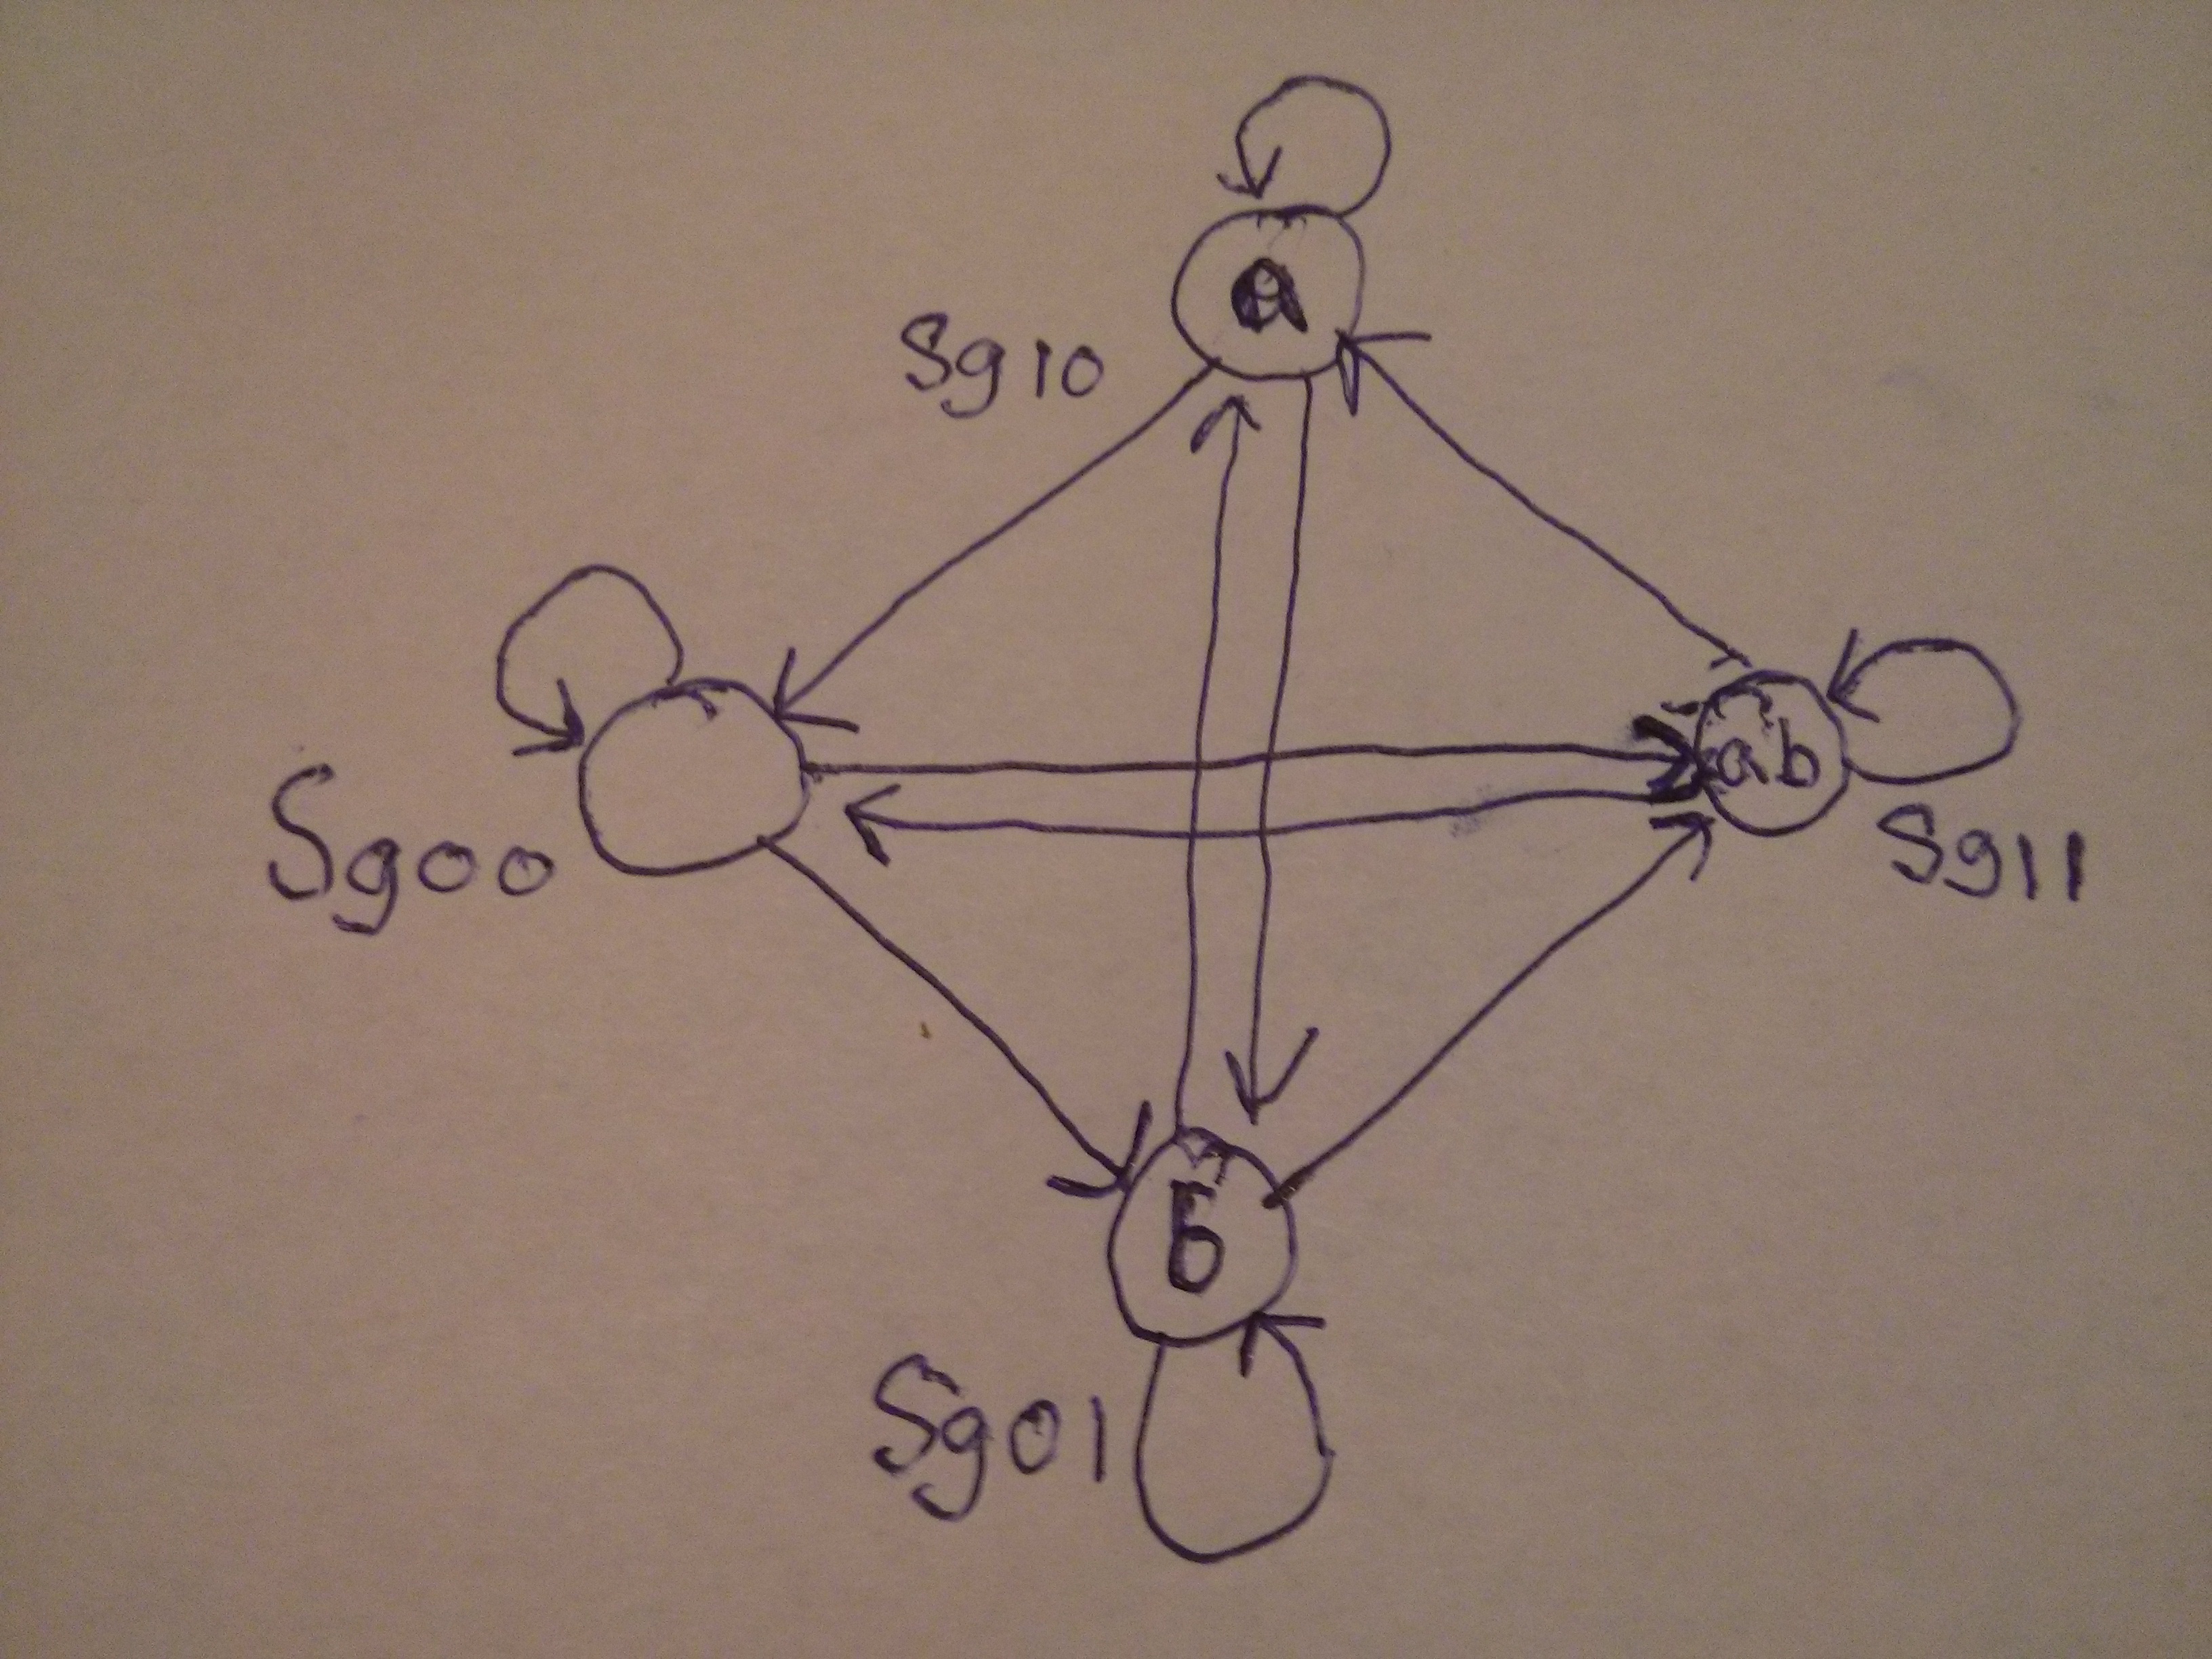 a
Sg10
ab
Sg00
Sg11
b
Sg01